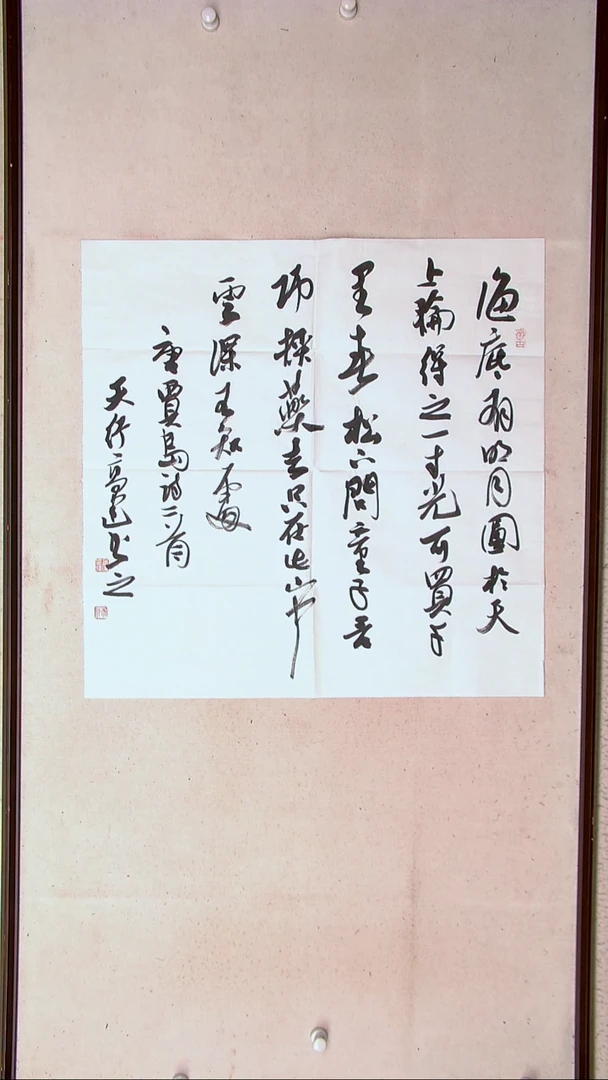 海底有明月圓於天
上輪得之一寸光可買千
里春松下問童子言
師採藥去只在此山中
雲深不知處
唐賈島詩二首
天行高書之